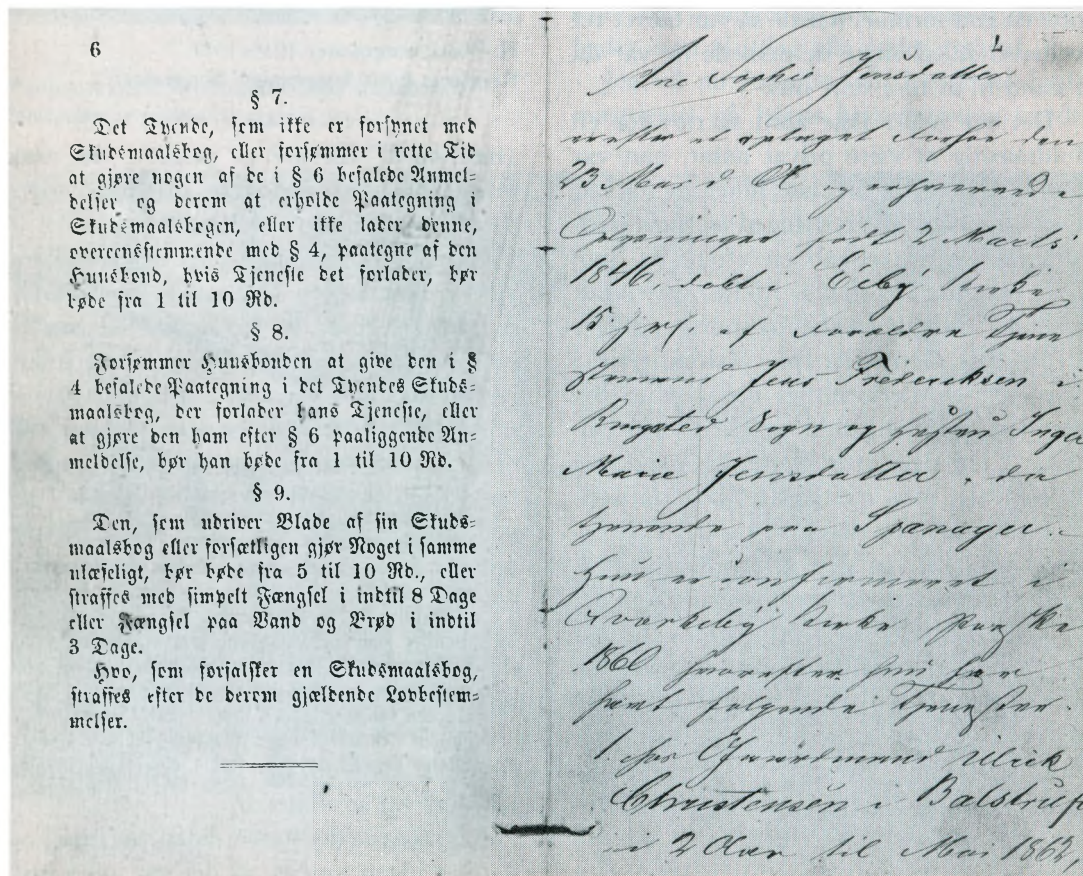 6
§ 7.
Det Tyende, som ikke er forsynet med
Skudsmaalsbog, eller forsømmer i rette Tid
at gjøre nogen af de i § 6 befalede Anmel-
delser og derom at erholde Paategning i
Skudsmaalsbogen, eller ikke lader denne,
overensstemmende med § 4, paategne af den
Huusbond, hvis Tjeneste det forlader, bør
bøde fra 1 til 10 Rd.
§ 8.
Forsømmer Huusbonden at give den i §
4 befalede Paategning i det Tyendes Skuds-
maalsbog, der forlader hans Tjeneste, eller
at gjøre den ham efter § 6 paaliggende An-
meldelse, bør han bøde fra 1 til 10 Rd.
§ 9.
Den, som udriver Blade af sin Skuds-
maalsbog eller forsætligen gjør Noget i samme
ulæseligt, bør bøde fra 5 til 10 Rd., eller
straffes med simpelt Fængsel i indtil 8 Dage
eller Fængsel paa Vand og Brød i indtil
3 Dage.
Hvo, som forfalsker en Skudsmaalsbog,
straffes efter de derom gjældende Lovbestem-
melser.
Ane Sophie Jensdatter
et optaget Forhør den
23 Marts
Oplysninger født 2 Marts
1846, døbt i Eiby Kirke
15 af Forældre Tjene
stemand Jens Fredericksen i
Ringsted Sogn og Inger
Marie Jensdatter, da
tjenende paa Spanager.
Hun er confirmeret i
Qværkeby Kirke Paaske
1860 hvorefter hun har
havt følgende Tjenester.
1. hos Gaardmand Ulrick
Christensen i Balstrup
i 2 Aar til Mai 1862,